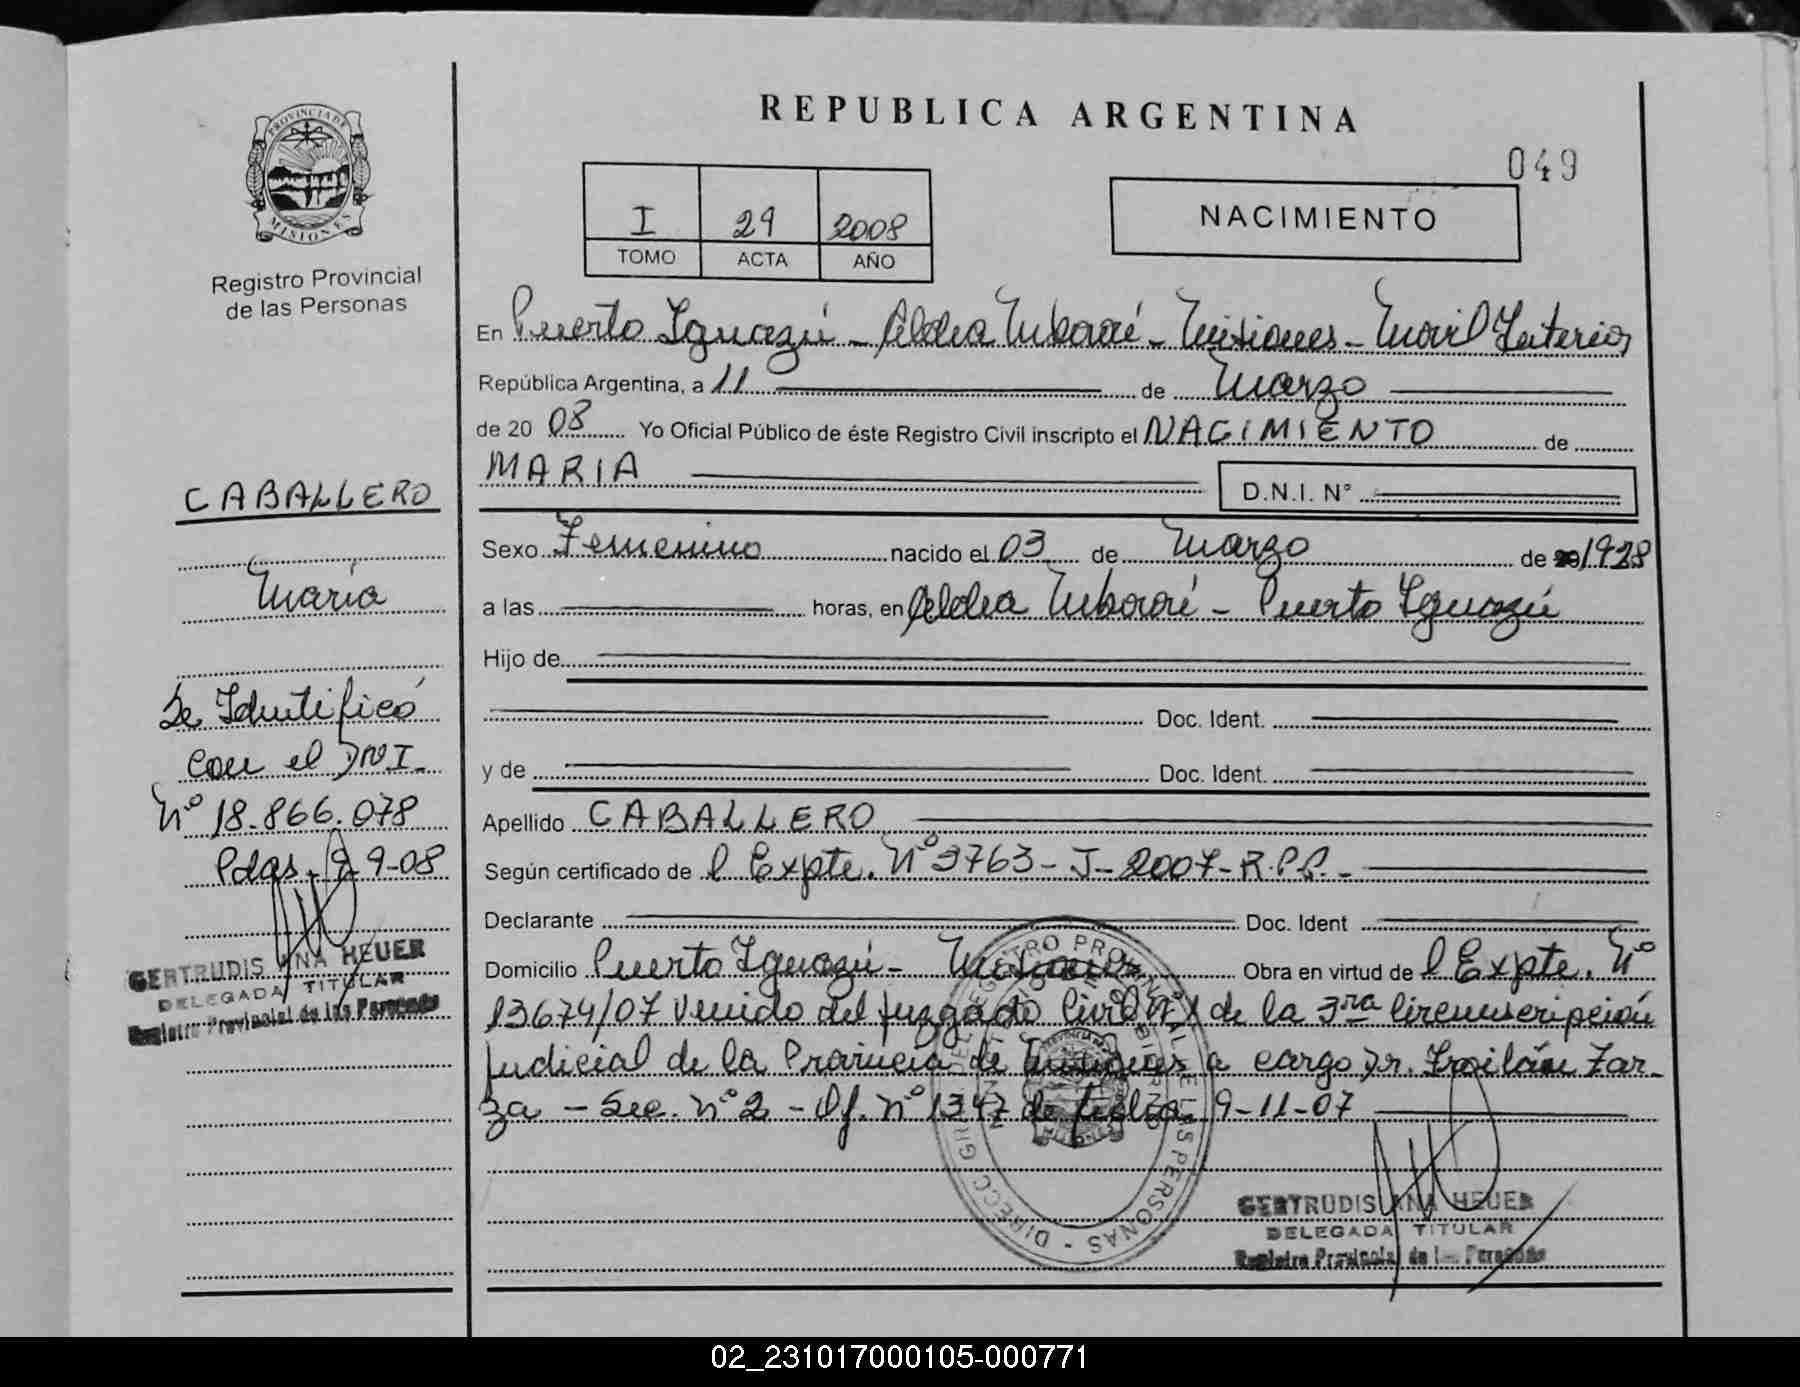 REPUBLICA ARGENTINA
049
PROVINCIA DE
MISIONES
Registro Provincial
de las Personas
I 29 2008
TOMO ACTA AÑO
NACIMIENTO
En Puerto Iguazú - Aldea Mbororé - Misiones - Movil Interior
República Argentina, a 11 de Marzo
de 20 08 Yo Oficial Público de éste Registro Civil inscripto el NACIMIENTO de
MARIA D.N.I. N°
Sexo Femenino nacido el 03 de Marzo de 20 1928
a las horas, en Aldea Mbororé - Puerto Iguazú
Hijo de
Doc. Ident.
y de Doc. Ident.
Apellido CABALLERO
Según certificado de l Expte. N° 3763-J-2007-R.P.P.-
Declarante Doc. Ident
Domicilio Puerto Iguazú - Misiones Obra en virtud de l Expte. N°
13674/07 Venido del Juzgado Civil N° 1 de la 3ra Circunscripción
Judicial de la Provincia de Misiones a cargo Dr. Froilán Zar-
za - Sec. n° 2 - Of. n° 1347 de fecha 9-11-07
CABALLERO
María
Se Identificó
con el DNI
N° 18.866.078
Pdas. 9-9-08
GERTRUDIS ANA HEUER
DELEGADA TITULAR
Registro Provincial de las Personas
GERTRUDIS ANA HEUER
DELEGADA TITULAR
Registro Provincial de las Personas
02_231017000105-000771